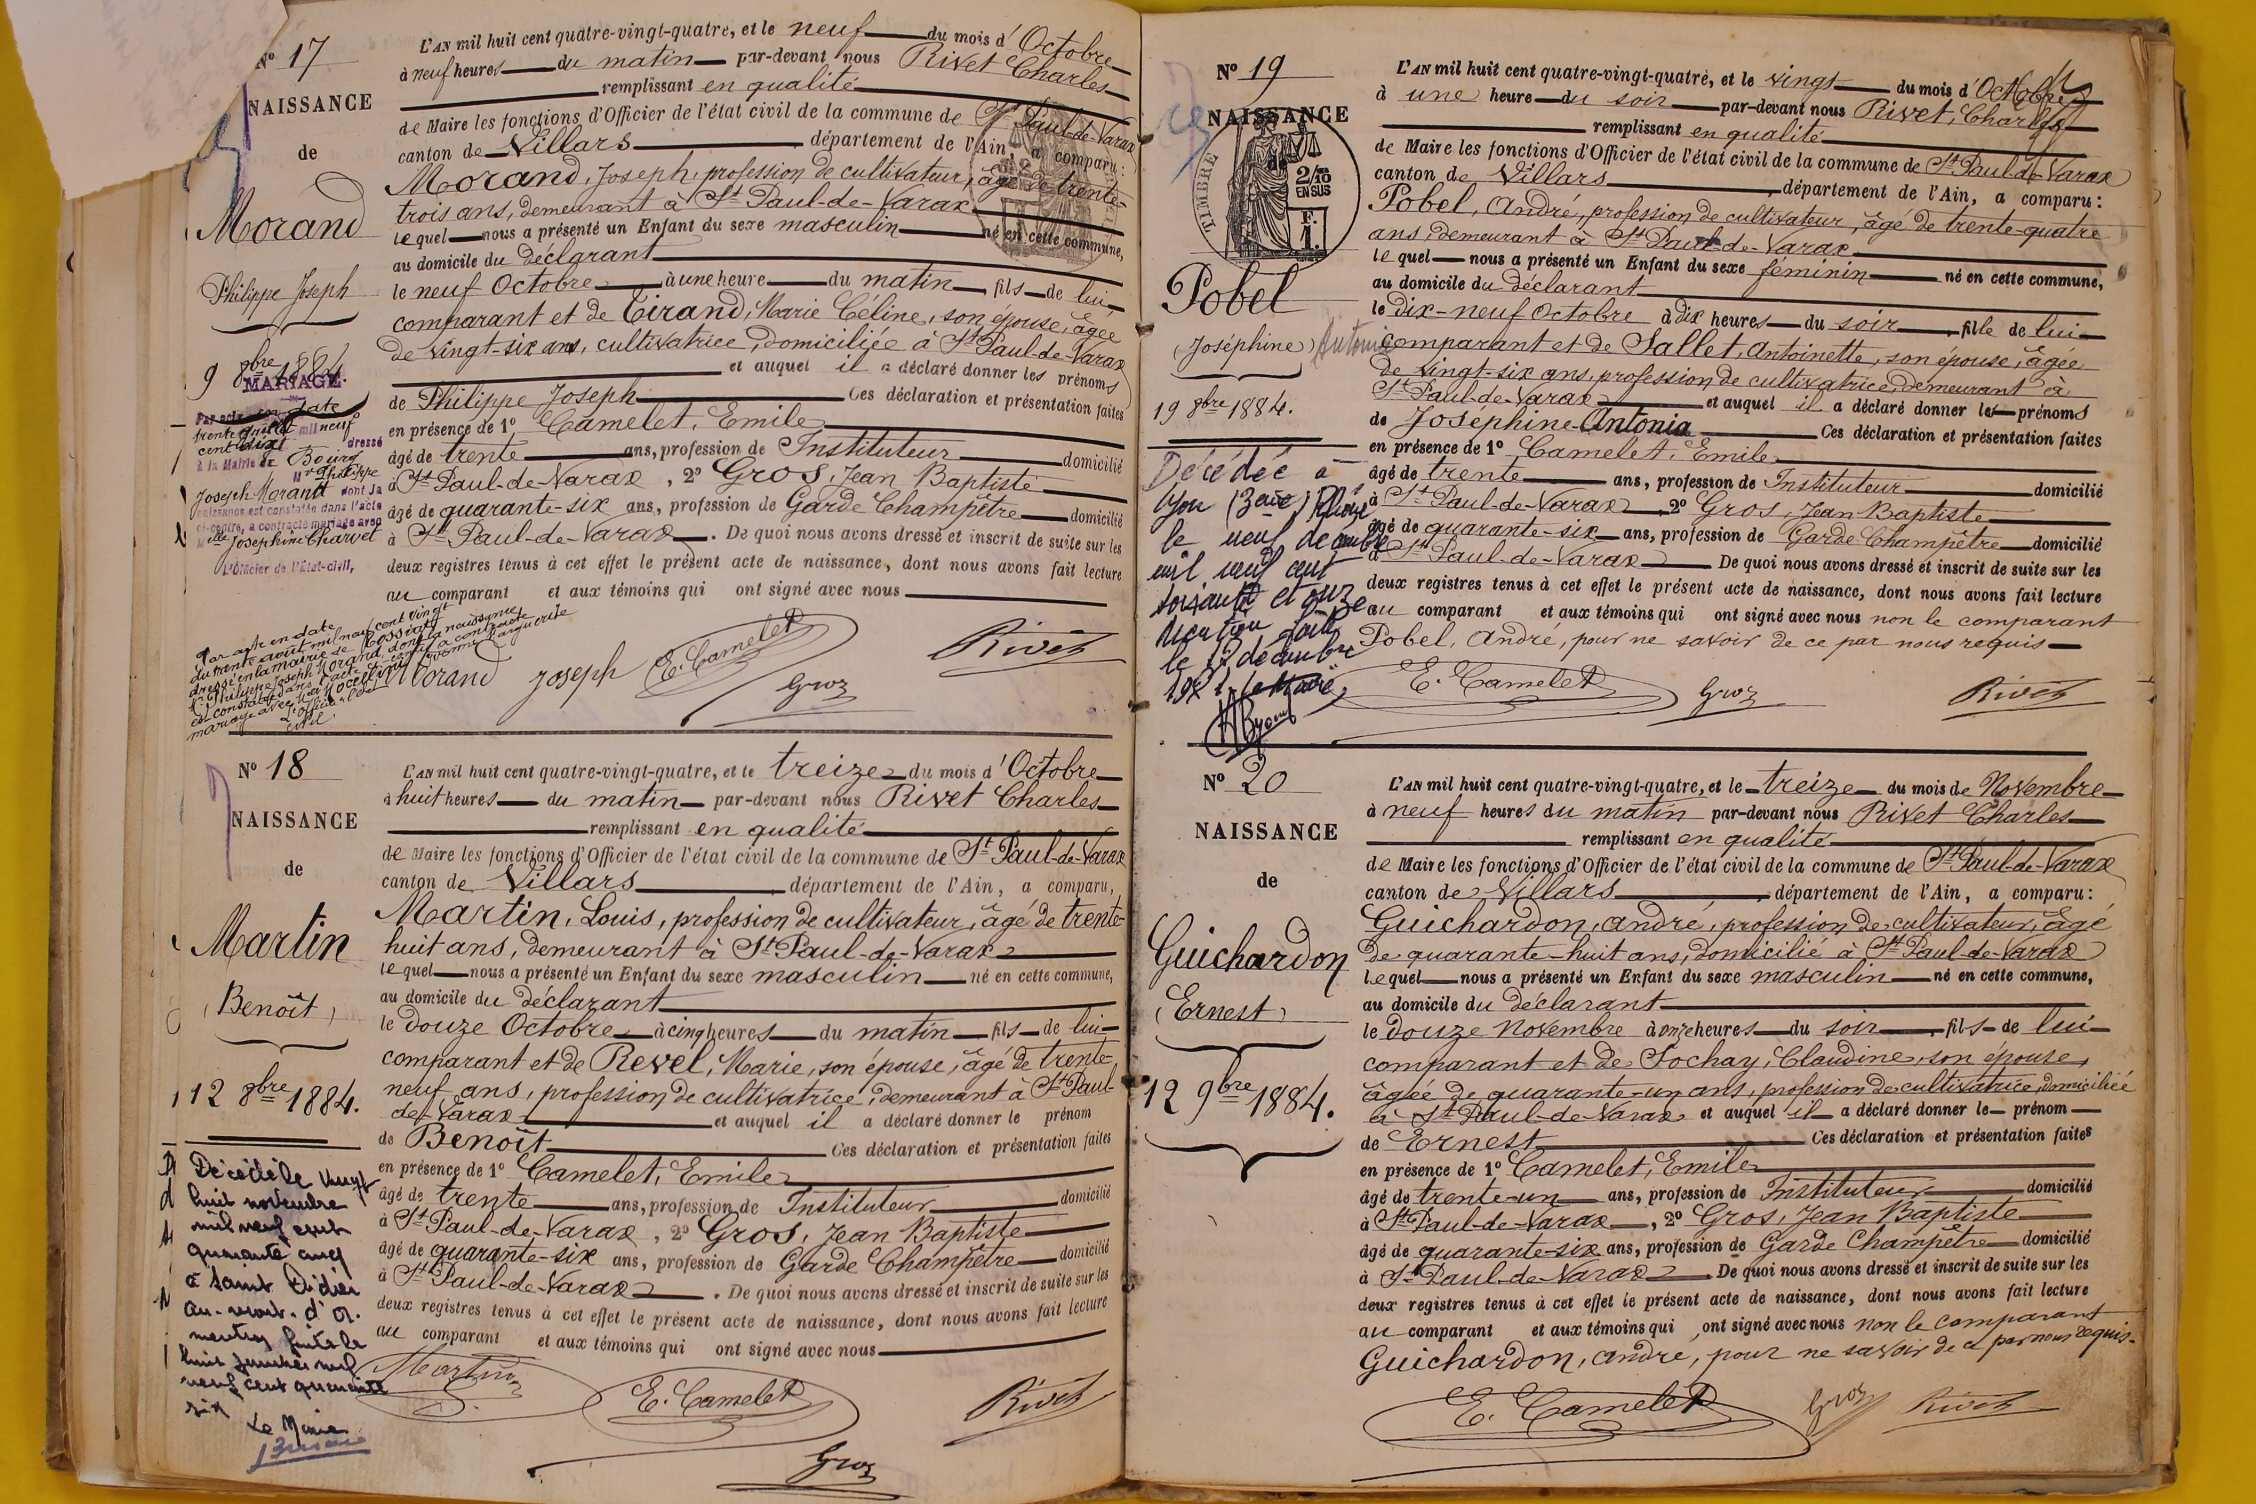 N° 17
NAISSANCE
de
Morand
Philippe Joseph
9 8bre 1884.
MARIAGE
Par acte en date
trente juillet mil neuf
cent dix
dressé
à la Mairie de Bourg
Mr Philippe
Joseph Morand dont la
naissance est constatée dans l'acte
ci-contre, a contracté mariage avec
Mlle Joséphine Charvet
L'Officier de l'État-civil,
Par acte en date
du trente août mil neuf cent vingt
dressé en la mairie de
Philippe Joseph Morand, dont la naissance
est constatée dans l'acte ci-contre a contracté
mariage avec Yvonne Marguerite
L'Officier de l'état
civil
L'AN mil huit cent quatre-vingt-quatre, et le neuf du mois d'Octobre
à neuf heures du matin par-devant nous Rivet Charles
remplissant en qualité
de Maire les fonctions d'Officier de l'état civil de la commune de St Paul-de-Varax
canton de Villars département de l'Ain, a comparu:
Morand, Joseph, profession de cultivateur, âgé de trente-
trois ans, demeurant à St Paul-de-Varax
lequel nous a présenté un Enfant du sexe masculin né en cette commune,
au domicile du déclarant
le neuf Octobre à une heure du matin fils de lui
comparant et de Tirand, Marie Céline, son épouse, âgée
de vingt-six ans, cultivatrice, domiciliée à St Paul-de-Varax
et auquel il a déclaré donner les prénoms
de Philippe Joseph Ces déclaration et présentation faites
en présence de 1° Camelet, Emile
âgé de trente ans, profession de Instituteur domicilié
à St Paul-de-Varax, 2° Gros, Jean Baptiste
âgé de quarante-six ans, profession de Garde Champêtre domicilié
à St Paul-de-Varax. De quoi nous avons dressé et inscrit de suite sur les
deux registres tenus à cet effet le présent acte de naissance, dont nous avons fait lecture
au comparant et aux témoins qui ont signé avec nous
Morand Joseph E. Camelet Gros Rivet
N° 18
NAISSANCE
de
Martin
(Benoît)
12 8bre 1884.
Décédé le vingt
huit novembre
mil neuf cent
quarante cinq
à Saint Didier
au-mont-d'Or.
mention faite le
huit janvier mil
neuf cent quarante
six
Le Maire
L'AN mil huit cent quatre-vingt-quatre, et le treize du mois d'Octobre
à huit heures du matin par-devant nous Rivet Charles
remplissant en qualité
de Maire les fonctions d'Officier de l'état civil de la commune de St Paul-de-Varax
canton de Villars département de l'Ain, a comparu,
Martin, Louis, profession de cultivateur, âgé de trente-
huit ans, demeurant à St Paul-de-Varax
lequel nous a présenté un Enfant du sexe masculin né en cette commune,
au domicile du déclarant
le douze Octobre à cinq heures du matin fils de lui
comparant et de Revel, Marie, son épouse, âgé de trente-
neuf ans, profession de cultivatrice, demeurant à St Paul-
de-Varax et auquel il a déclaré donner le prénom
de Benoît Ces déclaration et présentation faites
en présence de 1° Camelet, Emile
âgé de trente ans, profession de Instituteur domicilié
à St Paul-de-Varax, 2° Gros, Jean Baptiste
âgé de quarante-six ans, profession de Garde Champêtre domicilié
à St Paul-de-Varax. De quoi nous avons dressé et inscrit de suite sur les
deux registres tenus à cet effet le présent acte de naissance, dont nous avons fait lecture
au comparant et aux témoins qui ont signé avec nous
Martin E. Camelet Gros Rivet
N° 19
NAISSANCE
de
TIMBRE
2/10 EN SUS
F. 1.
Pobel
(Joséphine) Antonia
19 8bre 1884.
Décédée à
Lyon (3ème) Rhône
le neuf décembre
mil neuf cent
soixante et onze
Mention faite
le 13 décembre
1971 Le Maire
L'AN mil huit cent quatre-vingt-quatre, et le vingt du mois d'Octobre
à une heure du soir par-devant nous Rivet, Charles
remplissant en qualité
de Maire les fonctions d'Officier de l'état civil de la commune de St Paul-de-Varax
canton de Villars département de l'Ain, a comparu:
Pobel, André, profession de cultivateur, âgé de trente-quatre
ans, demeurant à St Paul-de-Varax
lequel nous a présenté un Enfant du sexe féminin né en cette commune,
au domicile du déclarant
le dix-neuf Octobre à dix heures du soir, fille de lui
comparant et de Sallet, Antoinette, son épouse, âgée
de vingt-six ans, profession de cultivatrice demeurant à
St Paul-de-Varax et auquel il a déclaré donner les prénoms
de Joséphine Antonia Ces déclaration et présentation faites
en présence de 1° Camelet, Emile
âgé de trente ans, profession de Instituteur domicilié
à St Paul-de-Varax, 2° Gros, Jean Baptiste
âgé de quarante-six ans, profession de Garde Champêtre domicilié
à St Paul-de-Varax De quoi nous avons dressé et inscrit de suite sur les
deux registres tenus à cet effet le présent acte de naissance, dont nous avons fait lecture
au comparant et aux témoins qui ont signé avec nous non le comparant
Pobel, André, pour ne savoir de ce par nous requis
E. Camelet Gros Rivet
N° 20
NAISSANCE
de
Guichardon
(Ernest)
12 9bre 1884.
L'AN mil huit cent quatre-vingt-quatre, et le treize du mois de Novembre
à neuf heures du matin par-devant nous Rivet Charles
remplissant en qualité
de Maire les fonctions d'Officier de l'état civil de la commune de St Paul-de-Varax
canton de Villars, département de l'Ain, a comparu:
Guichardon, André, profession de cultivateur, âgé
de quarante-huit ans, domicilié à St Paul-de-Varax
lequel nous a présenté un Enfant du sexe masculin né en cette commune,
au domicile du déclarant
le douze Novembre à onze heures du soir, fils de lui
comparant et de Sochay, Claudine, son épouse,
âgée de quarante-un ans, profession de cultivatrice, domiciliée
à St Paul-de-Varax et auquel il a déclaré donner le prénom
de Ernest Ces déclaration et présentation faites
en présence de 1° Camelet, Emile
âgé de trente-un ans, profession de Instituteur domicilié
à St Paul-de-Varax, 2° Gros, Jean Baptiste
âgé de quarante-six ans, profession de Garde Champêtre domicilié
à St Paul-de-Varax. De quoi nous avons dressé et inscrit de suite sur les
deux registres tenus à cet effet le présent acte de naissance, dont nous avons fait lecture
au comparant et aux témoins qui ont signé avec nous non le comparant
Guichardon, André, pour ne savoir de ce par nous requis.
E. Camelet Gros Rivet